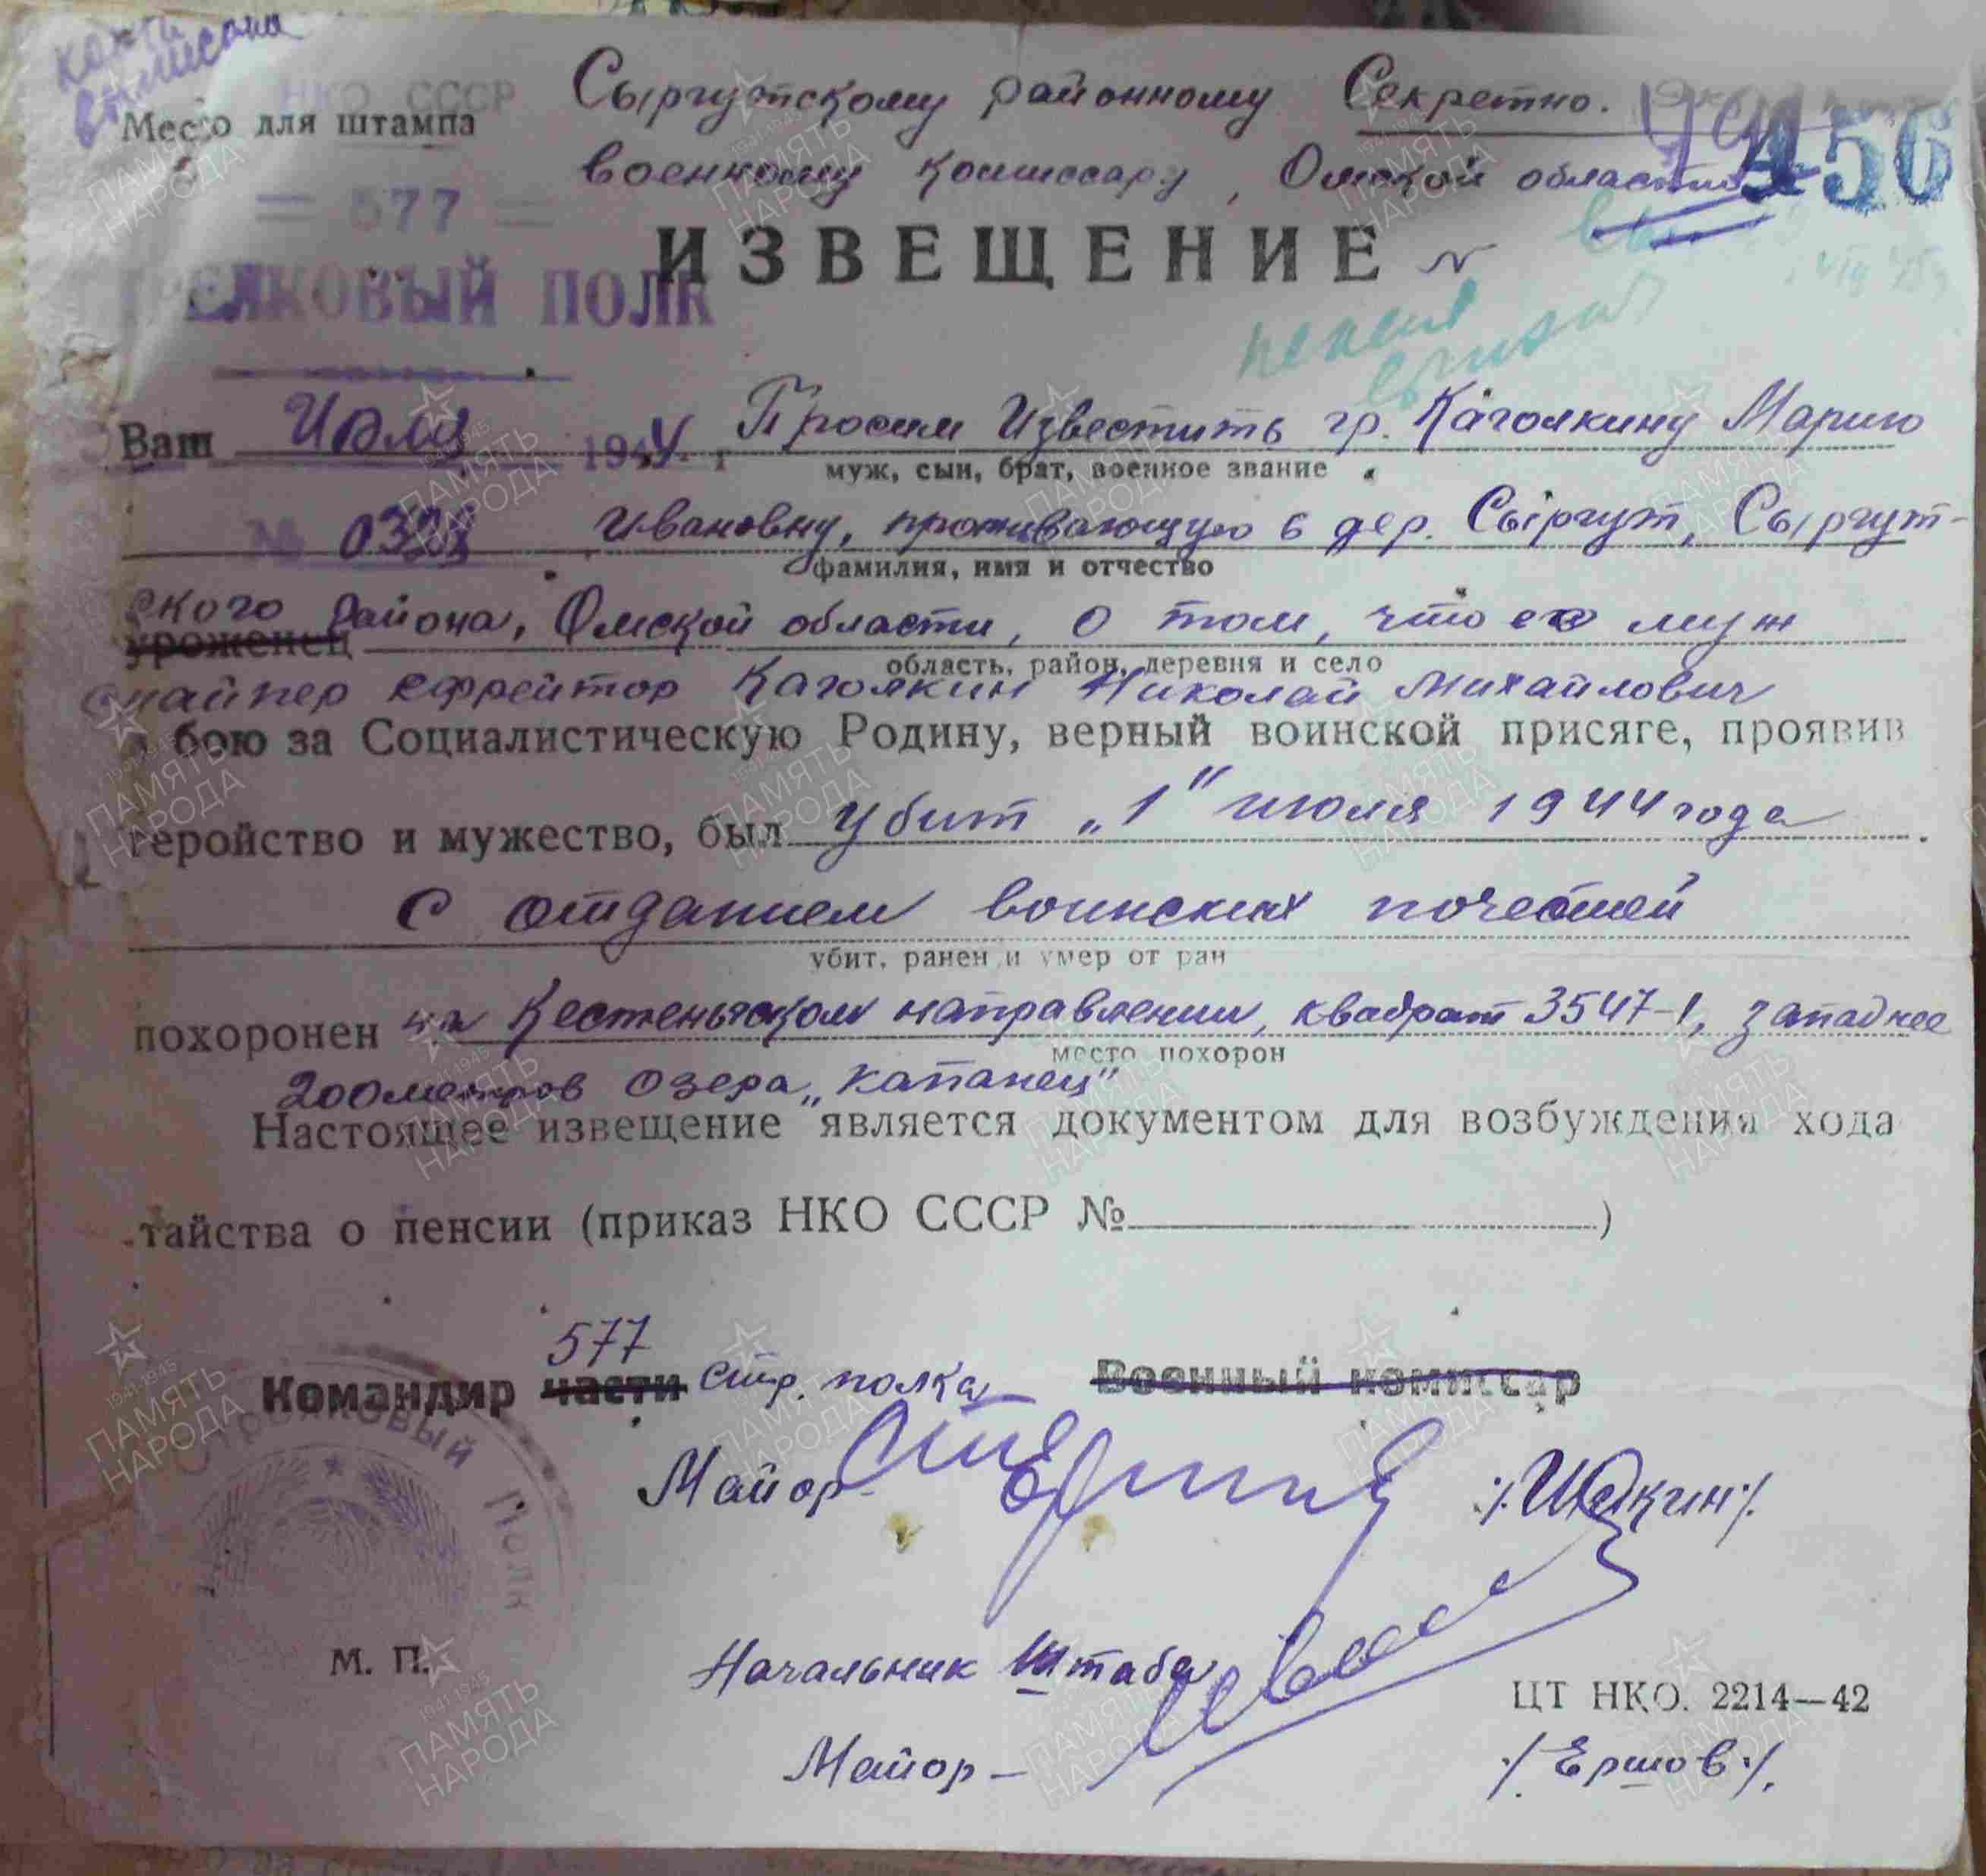 НКО СССР
Место для штампа
= 577 =
СТРЕЛКОВЫЙ ПОЛК
Сыргутскому районному Секретно.
военному комиссару, Омской области
456
ИЗВЕЩЕНИЕ
Ваш Июля 1944 г Просим Известить гр. Каголкину Марию
муж, сын, брат, военное звание
№ Ивановну, проживающую в дер. Сыргут, Сыргут-
фамилия, имя и отчество
ского района, Омской области, о том, что ее муж
уроженец
область, район, деревня и село
снайпер ефрейтор Каголкин Николай Михайлович
в бою за Социалистическую Родину, верный воинской присяге, проявив
геройство и мужество, был убит „1" июля 1944 года.
с отданием воинских почестей
убит, ранен и умер от ран
похоронен на Кестеньгском направлении, квадрат 3547-1, западнее
место похорон
200 метров озера „Капанец"
Настоящее извещение является документом для возбуждения хода
тайства о пенсии (приказ НКО СССР № )
577
Командир части стр. полка Военный комиссар
Майор /Шукин/.
СТРЕЛКОВЫЙ ПОЛК
М. П.
Начальник Штаба
ЦТ НКО. 2214—42
Майор- /Ершов/.
ПАМЯТЬ НАРОДА
1941-1945